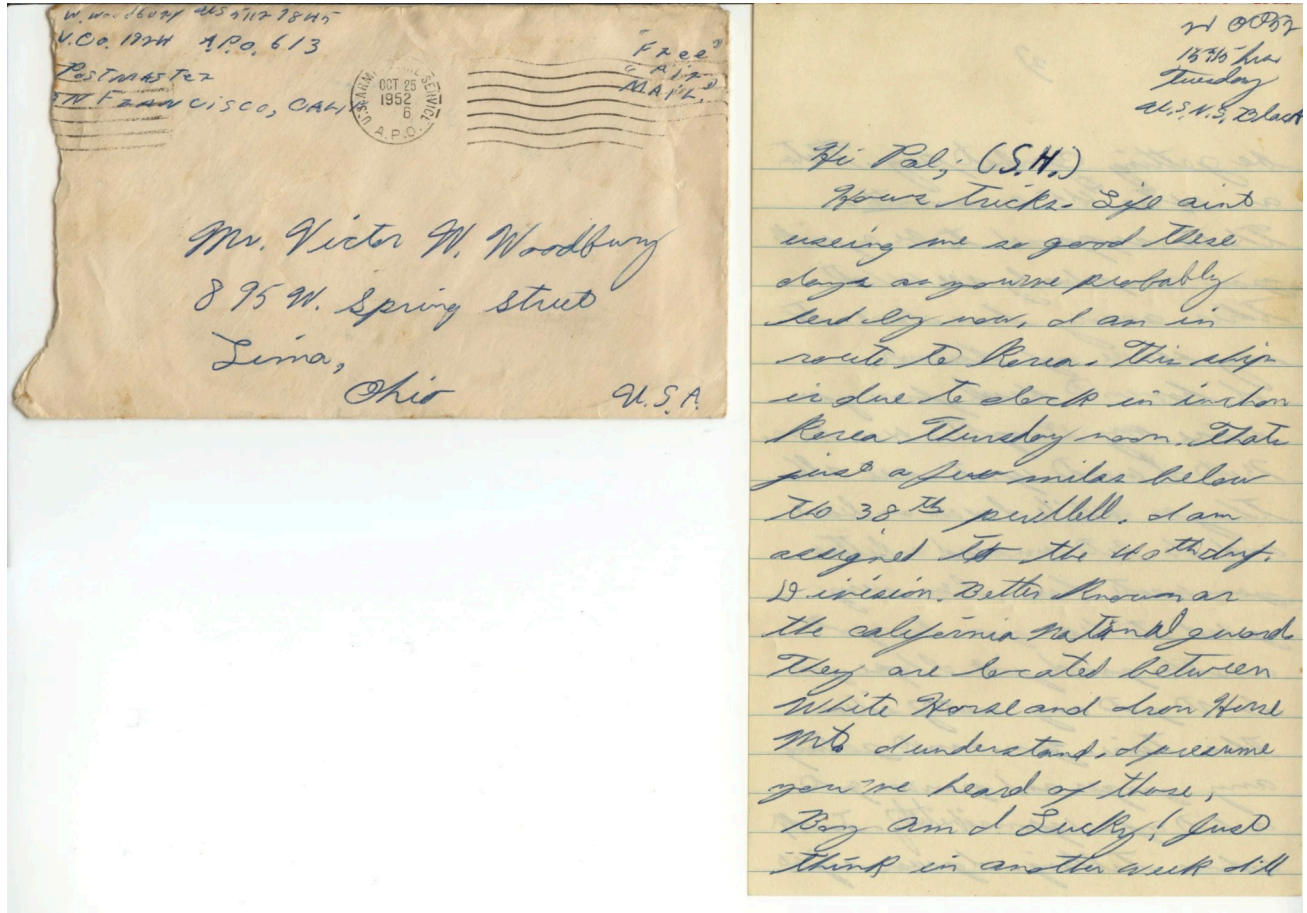 W. Woodbury US 5112 7845
V.Co. 1924 A.P.O. 613
Postmaster
N Francisco, Calif
"Free"
"Air
Mail"
U.S. ARM SERVICE
OCT 25
1952
6
A.P.O.
Mr. Victor W. Woodbury
895 W. Spring Street
Lima,
Ohio
U.S.A.
21 Oct 52
1545 hrs
Tuesday
U.S.N.S. Black
Hi Pal, (S.H.)
Hows tricks. Life aint
useing me so good these
days as youve probably
by now, I am in
route to Korea. This ship
is due to dock in inchon
Korea Thursday noon. Thats
just a few miles below
the 38th perillell. I am
assigned to the 40th Inf.
Division. Better Known as
the california national guard
They are located between
White Horse and Iron Horse
Mts I understand, I presume
you've heard of those,
Boy am I Lucky! Just
think in another week I'll